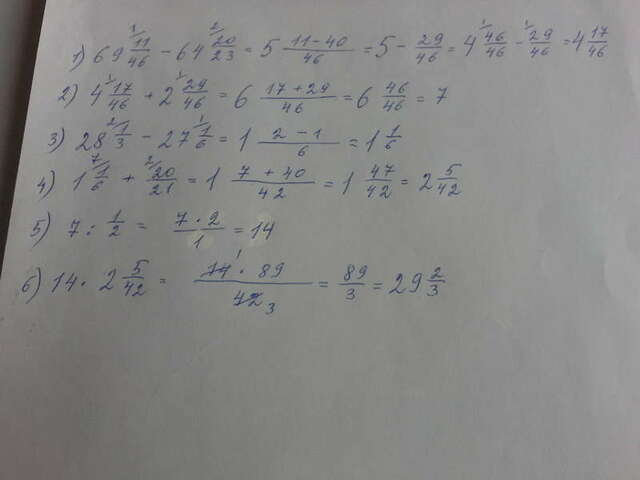 1) 69 11/46 - 64 20/23 = 5 11-40/46 = 5 - 29/46 = 4 46/46 - 29/46 = 4 17/46
2) 4 17/46 + 2 29/46 = 6 17+29/46 = 6 46/46 = 7
3) 28 1/3 - 27 1/6 = 1 2-1/6 = 1 1/6
4) 1 1/6 + 20/21 = 1 7+40/42 = 1 47/42 = 2 5/42
5) 7 : 1/2 = 7·2/1 = 14
6) 14 · 2 5/42 = 14·89/42 = 89/3 = 29 2/3